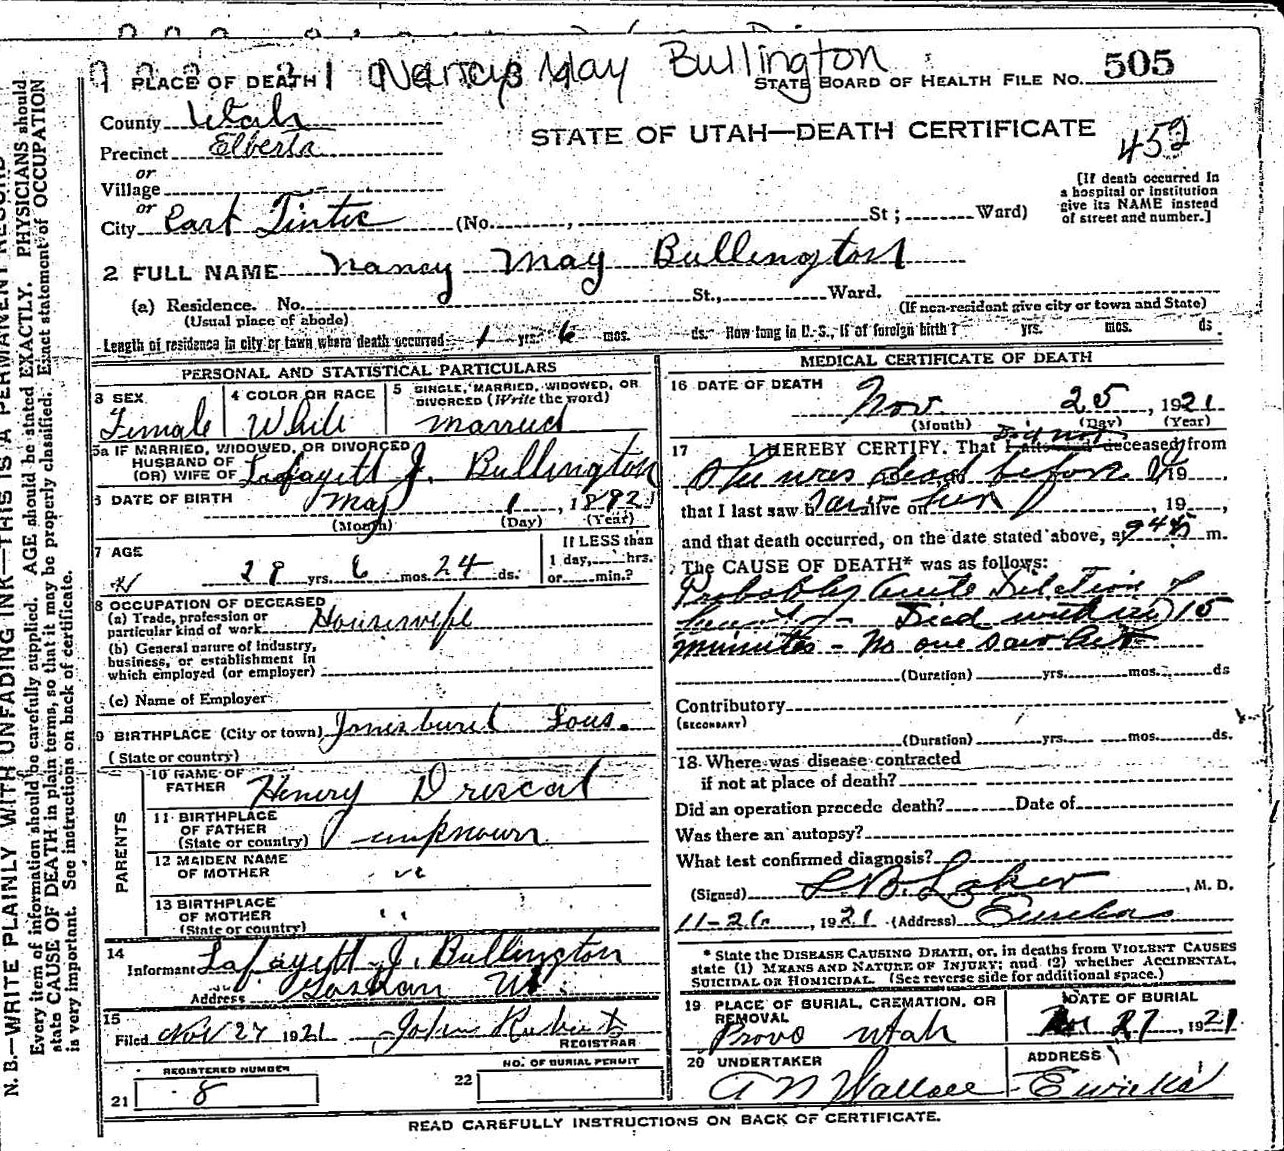 Nancy May Bullington
PLACE OF DEATH
STATE BOARD OF HEALTH FILE NO. 505
County Utah
STATE OF UTAH—DEATH CERTIFICATE
452
Precinct Elberta
or
Village
or
City East Tintic (No. , St ; Ward)
[If death occurred in
a hospital or institution
give its NAME instead
of street and number.]
2 FULL NAME Nancy May Bullington
(a) Residence. No. St., Ward.
(Usual place of abode)
(If non-resident give city or town and State)
Length of residence in city or town where death occurred 1 yrs. 6 mos. ds. How long in U. S., if of foreign birth? yrs. mos. ds
PERSONAL AND STATISTICAL PARTICULARS
3 SEX
Female
4 COLOR OR RACE
White
5 SINGLE, MARRIED, WIDOWED, OR
DIVORCED (Write the word)
Married
5a IF MARRIED, WIDOWED, OR DIVORCED
HUSBAND OF
(OR) WIFE OF Lafayett J. Bullington
6 DATE OF BIRTH May 1, 1892
(Month) (Day) (Year)
7 AGE
29 yrs. 6 mos. 24 ds.
If LESS than
1 day, hrs.
or min.?
8 OCCUPATION OF DECEASED
(a) Trade, profession or
particular kind of work Housewife
(b) General nature of industry,
business, or establishment in
which employed (or employer)
(c) Name of Employer
9 BIRTHPLACE (City or town) Lous.
(State or country)
PARENTS
10 NAME OF
FATHER Henry Driscal
11 BIRTHPLACE
OF FATHER
(State or country) unknown
12 MAIDEN NAME
OF MOTHER " "
13 BIRTHPLACE
OF MOTHER
(State or country) " "
14
Informant Lafayett J. Bullington
Address Ut.
15
Filed Nov 27 1921 John
REGISTRAR
REGISTERED NUMBER
21 8
NO. OF BURIAL PERMIT
22
MEDICAL CERTIFICATE OF DEATH
16 DATE OF DEATH
Nov. 25, 1921
(Month) (Day) (Year)
17 I HEREBY CERTIFY, That I did not attended deceased from
She was dead before I 19 ,
that I last saw h saw alive on her , 19 ,
and that death occurred, on the date stated above, at 9 45 m.
The CAUSE OF DEATH* was as follows:
Probably Acute Dilation of
heart - Died within 15
minutes - No one saw her
(Duration) yrs. mos. ds
Contributory
(SECONDARY)
(Duration) yrs. mos. ds.
18. Where was disease contracted
if not at place of death?
Did an operation precede death? Date of
Was there an autopsy?
What test confirmed diagnosis?
(Signed) , M. D.
11-26, 1921 (Address) Eureka
* State the DISEASE CAUSING DEATH, or, in deaths from VIOLENT CAUSES
state (1) MEANS AND NATURE OF INJURY; and (2) whether ACCIDENTAL,
SUICIDAL OR HOMICIDAL. (See reverse side for additional space.)
19 PLACE OF BURIAL, CREMATION, OR
REMOVAL
Provo Utah
DATE OF BURIAL
27, 1921
20 UNDERTAKER
A N Wallace
ADDRESS
Eureka
READ CAREFULLY INSTRUCTIONS ON BACK OF CERTIFICATE.
N. B.—WRITE PLAINLY WITH UNFADING INK—THIS IS A PERMANENT RECORD
Every item of information should be carefully supplied. AGE should be stated EXACTLY. PHYSICIANS should
state CAUSE OF DEATH in plain terms, so that it may be properly classified. Exact statement of OCCUPATION
is very important. See instructions on back of certificate.